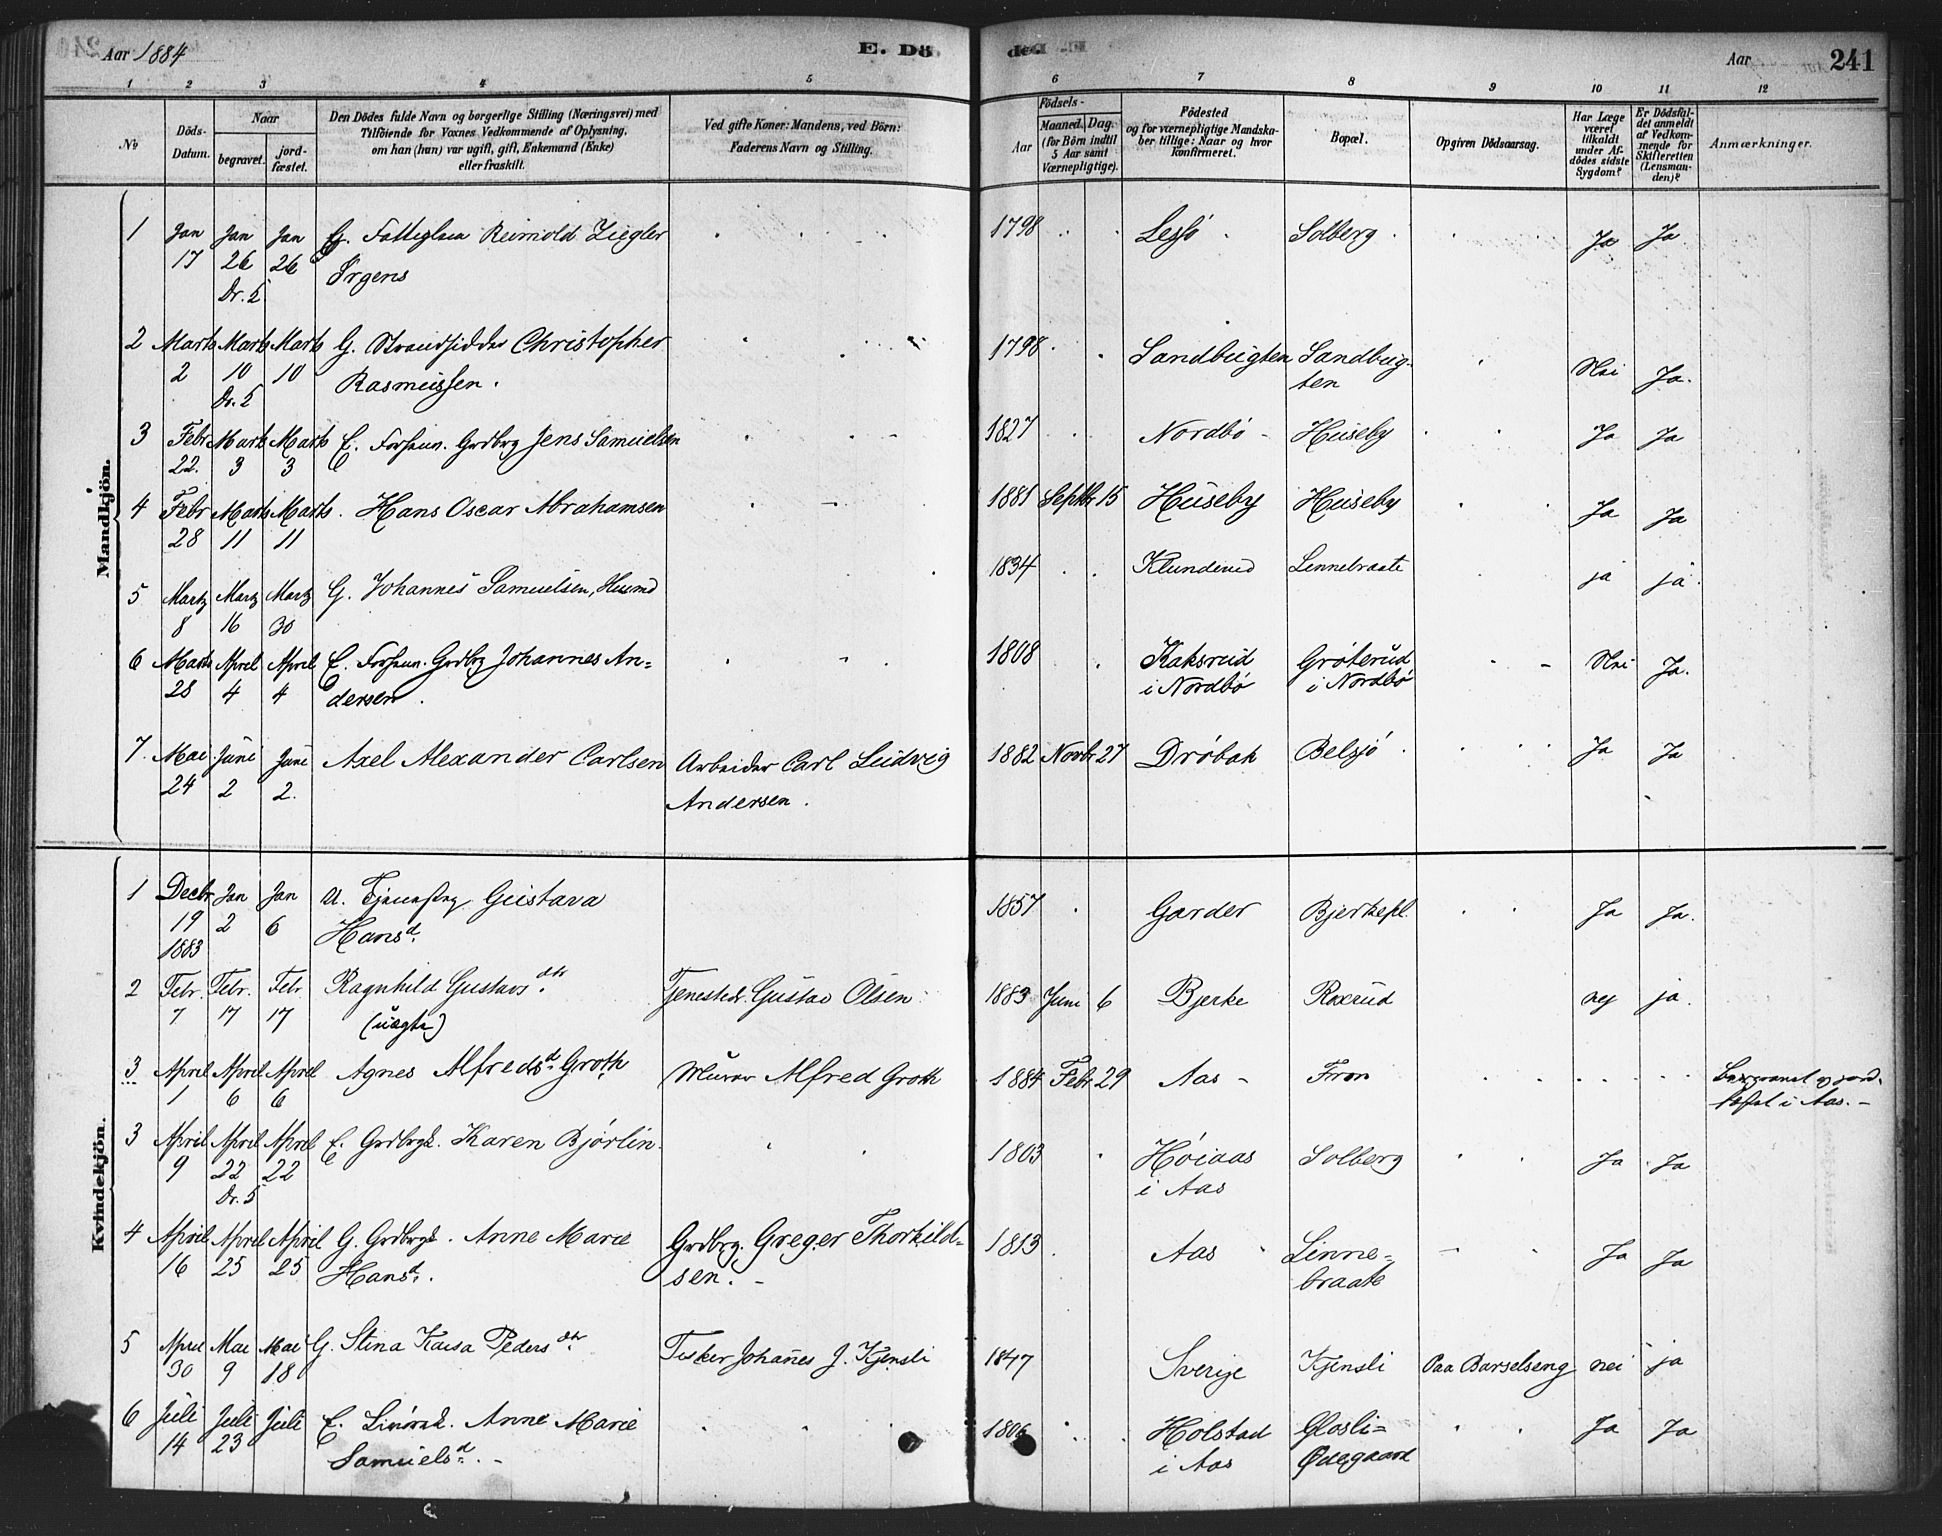 Aar 1884
E. Dö
1 2 3 4 5
No
Döds-Datum.
Naar
begravet.
jord-fæstet.
Den Dödes fulde Navn og borgerlige Stilling (Næringsvei) med
Tilföiende for Voxnes Vedkommende af Oplysning,
om han (hun) var ugift, gift, Enkemand (Enke)
eller fraskilt.
Ved gifte Koner: Mandens, ved Börn:
Faderens Navn og Stilling.
Mandkjön.
1 Jan 17 Jan 26 Dr. 5 Jan 26 G. Fattiglem Reimold Ziegler
Ørgens
2 Marts 2 Marts 10 Dr. 5 Marts 10 G. Strandsidder Christopher
Rasmussen.
3 Febr 22. Marts 3 Marts 3 E. Forhen. Grdbrg Jens Samuelsen
4 Febr 28 Marts 11 Marts 11 Hans Oscar Abrahamsen
5 Marts 8 Marts 16 Marts 30 G. Johannes Samuelsen, Husmd
6 Marts 28 April 4 April 4 E. Forhen. Grdbrg Johannes An=
dersen.
7 Mai 24 Juni 2 Juni 2. Axel Alexander Carlsen Arbeider Carl Ludvig
Andersen.
Kvindekjön.
1 Decbr 19 1883 Jan 2 Jan 6 U. Tjenestpg Gustava
Hansd.
2 Febr. 7 Febr. 17 Febr 17 Ragnhild Gustavsdtr. Tjenestedr. Gustav Olsen
(uægte)
3 April 1 April 6 April 6 Agnes Alfredsd. Groth Murer Alfred Groth
3 April 9 April 22 Dr. 5 April 22 E. Grdbrgk. Karen Bjørlin.
4 April 16 April 25 April 25 G. Grdbrgk. Anne Marie Grdbrg. Greger Thorkild=
Hansd. sen. -
5 April 30 Mai 9 Mai 18 G. Stina Kaisa Pedersdtr. Tisker Johañes J. Kjensli
6 Juli 14 Juli 23 Juli E. Anne Marie
Samuelsd. -
ded
Aar 241
6 7 8 9 10 11 12
Födsels-
Aar
Maaned. Dag.
(for Börn indtil
5 Aar samt
Værnepligtige).
Födested
og for værnepligtige Mandska-
ber tillige: Naar og hvor
Konfirmeret.
Bopæl.
Opgiven Dödsaarsag.
Har Læge
været
tilkaldt
under Af-
dödes sidste
Sygdom?
Er Dödsfal-
det anmeldt
af Vedkom-
mende for
Skifteretten
(Lensman-
den)?
Anmærkninger.
1798 Lesjø Solberg Ja Ja
1798 Sandbugten Sandbug-
ten Nei Ja.
1827 Nordbø Huseby Ja Ja
1881 Septbr 15 Huseby Huseby Ja Ja
1834 Klunderud Linnebraate ja ja
1808 Kaksrud Grøterud Nei Ja.
i Nordbø i Nordbø
1882 Novbr 27 Drøbak Belsjø Ja Ja
1857 Garder Bjerkepl. Ja Ja.
1883 Juni 6 Bjerke Roxrud nej ja.
1884 Febr 29 Aas - Fron Begravet og jord-
fæstet i Aas. -
1803 Høiaas Solberg Ja Ja
i Aas
1813 Aas Linne=
braate Ja Ja
1847 Sverige Kjensli Paa Barselseng nei ja
1806 Holstad Glosli= Ja Ja
i Aas Ødegaard